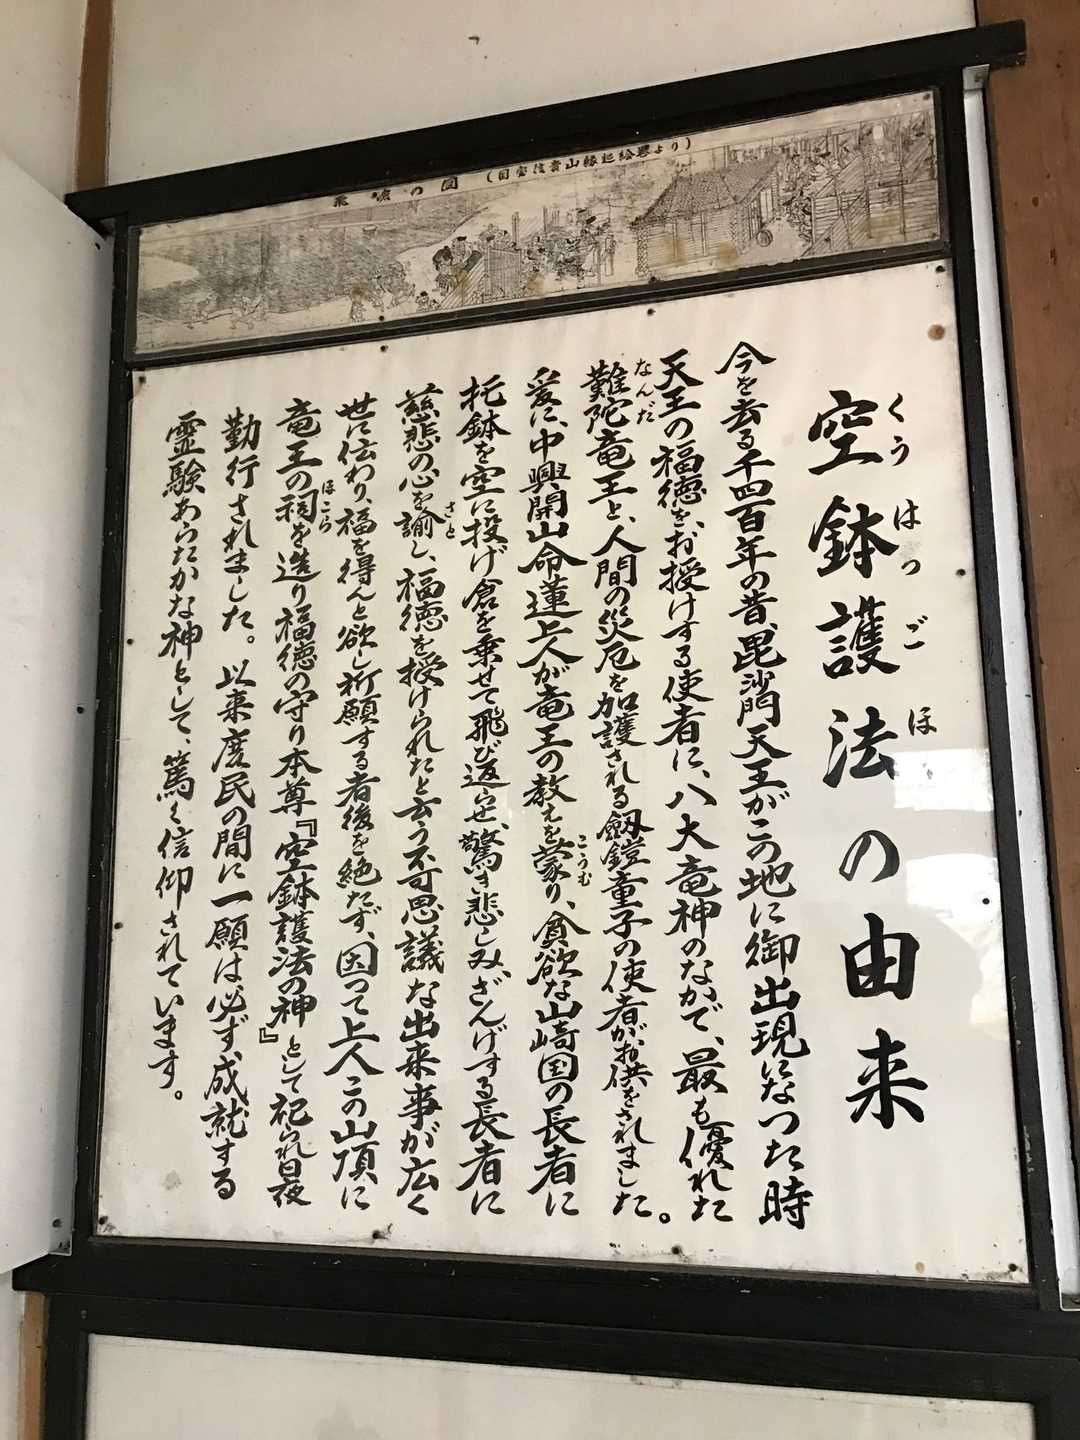 飛倉の図 (国宝信貴山縁起絵巻より)
空鉢護法の由来
くうはつごほ
今を去る千四百年の昔、毘沙門天王がこの地に御出現になつた時
天王の福徳を、お授けする使者に、八大竜神のなかで、最も優れた
難陀竜王と、人間の災厄を加護される剱鎧童子の使者がお供をされました。
なんだ
爰に、中興開山命蓮上人が竜王の教えを蒙り、貪欲な山崎国の長者に
こうむ
托鉢を空に投げ倉を乗せて飛び返らせ、驚き悲しみ、ざんげする長者に
慈悲の心を諭し、福徳を授けられたと云う不可思議な出来事が広く
さと
世に伝わり、福を得んと欲し祈願する者後を絶たず、因つて上人この山頂に
竜王の祠を造り福徳の守り本尊『空鉢護法の神』として祀られ日夜
ほこら
勤行されました。以来庶民の間に一願は必ず成就する
霊験あらたかな神として、篤く信仰されています。